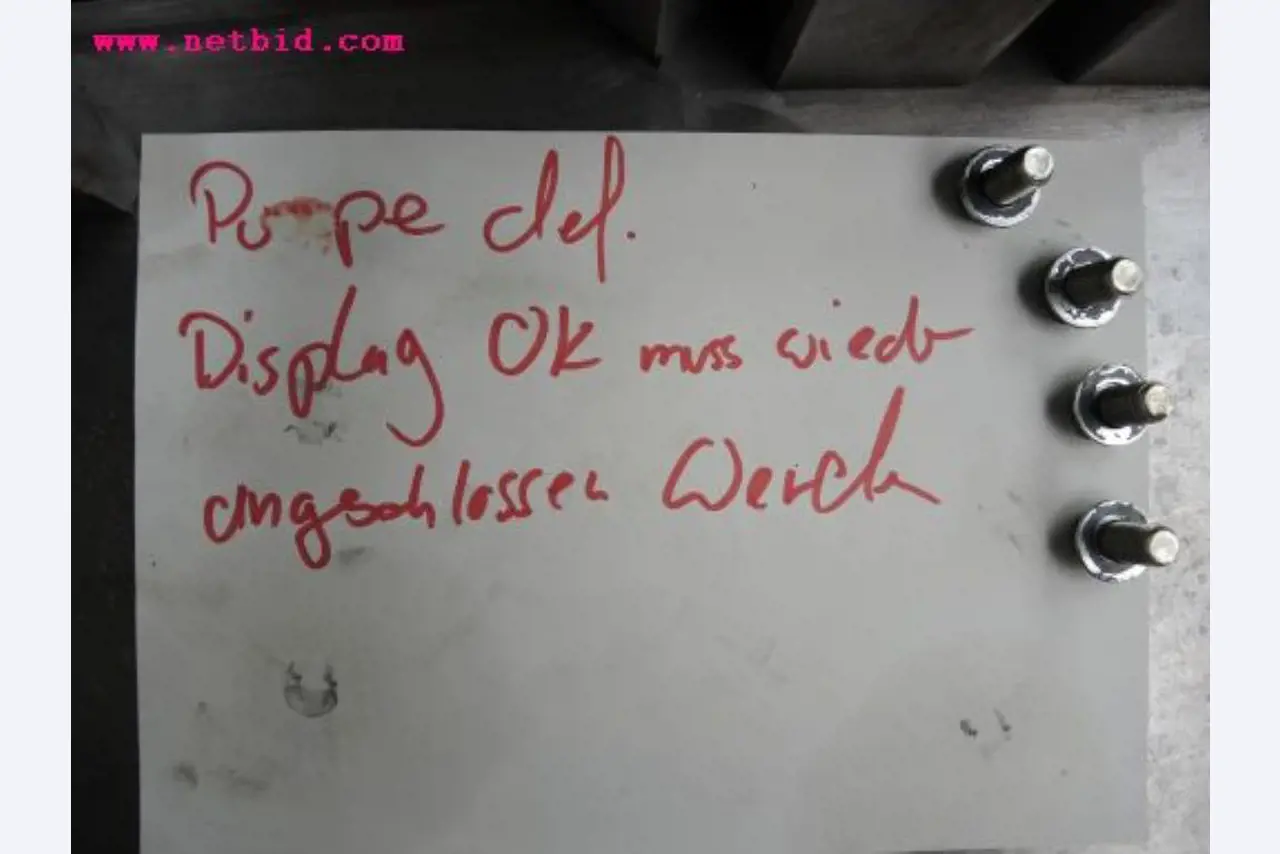 www.netbid.com
Pumpe def.
Display OK muss wieder
angeschlossen Werden